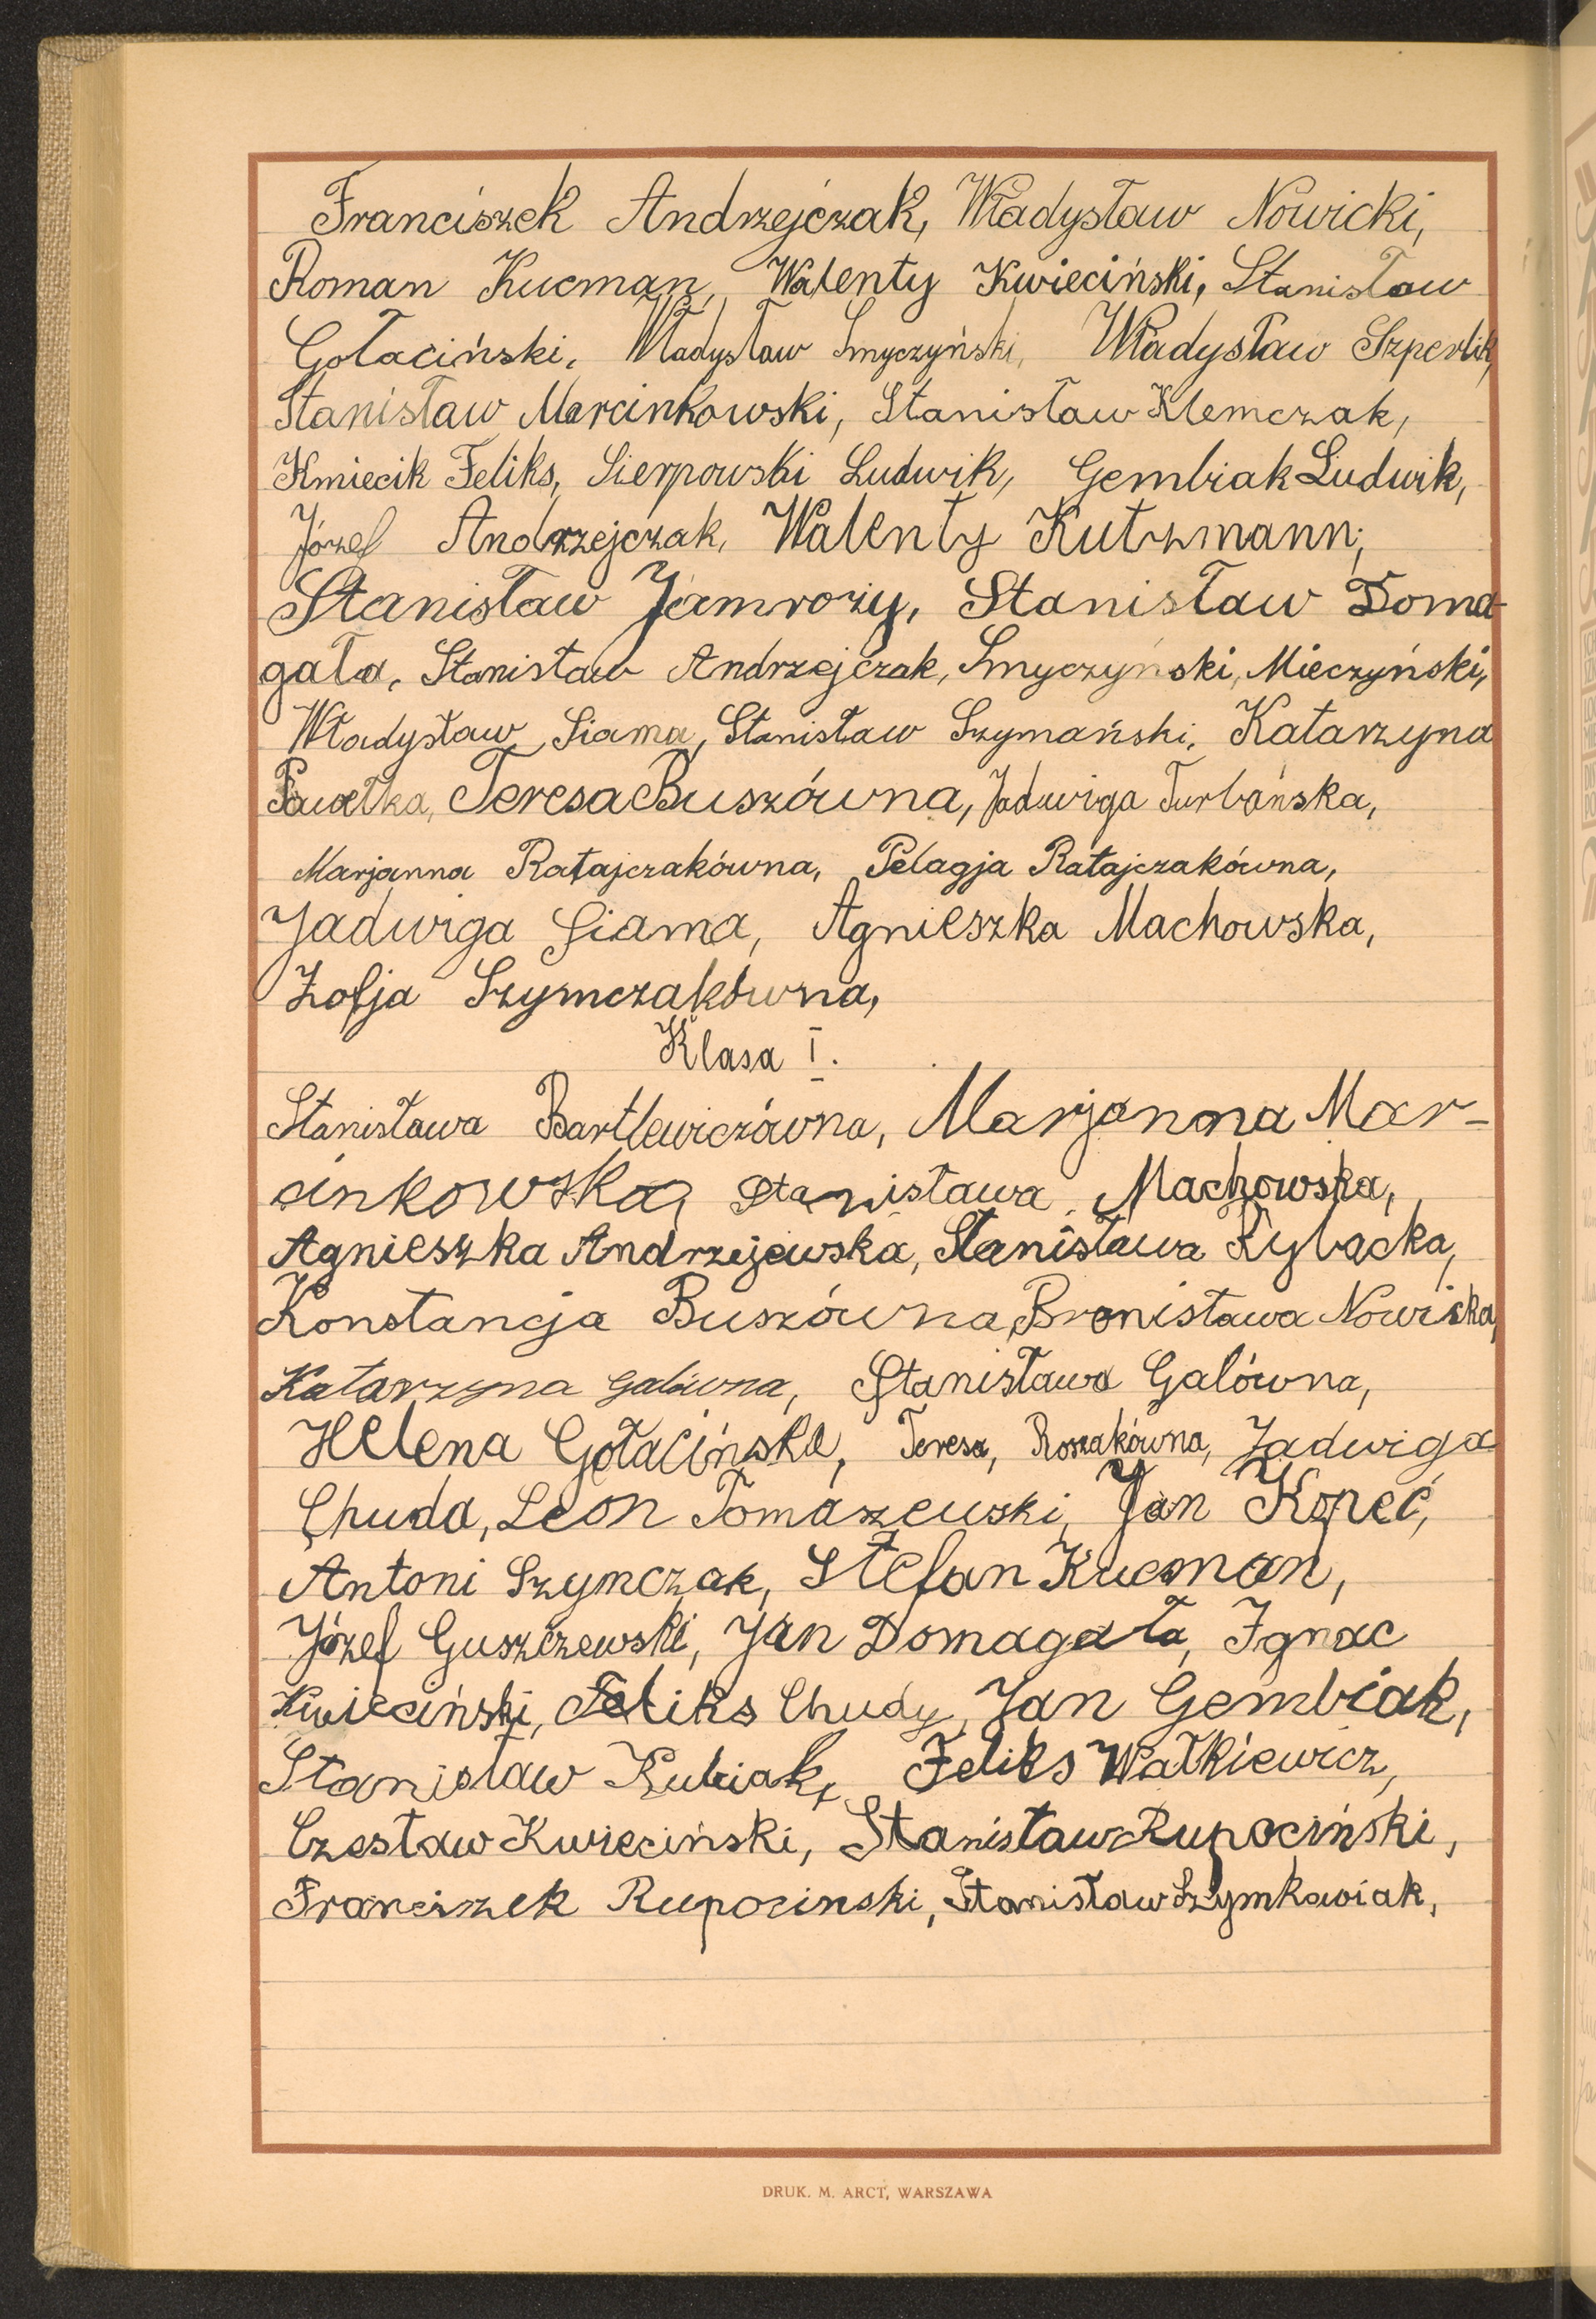 Franciszek Andrzejczak, Władysław Nowicki,
Roman Kucman, Walenty Kwieciński, Stanisław
Gołaciński, Władysław Smyczyński, Władysław Szperlik,
Stanisław Marcinkowski, Stanisław Klemczak,
Kmiecik Feliks, Sierpowski Ludwik, Gembiak Ludwik,
Józef Andrzejczak, Walenty Kutzmann,
Stanisław Jamroży, Stanisław Doma-
gała, Stanisław Andrzejczak, Smyczyński, Mieczyński,
Władysław Siama, Stanisław Szymański, Katarzyna
Pawełka, Teresa Buszówna, Jadwiga Turbańska,
Marjanna Ratajczakówna, Pelagja Ratajczakówna,
Jadwiga Siama, Agnieszka Machowska,
Zofja Szymczakówna,
Klasa I.
Stanisława Bartlewiczówna, Marjanna Mar-
cinkowska, Stanisława Machowska,
Agnieszka Andrzejewska, Stanisława Rybacka,
Konstancja Buszówna, Bronisława Nowicka,
Katarzyna Galówna, Stanisława Galówna,
Helena Gołacińska, Teresa, Roszakówna, Jadwiga
Chuda, Leon Tomaszewski, Jan Kopeć,
Antoni Szymczak, Stefan Kucman,
Józef Guszczewski, Jan Domagała, Ignac
Kwieciński, Feliks Chudy, Jan Gembiak,
Stanisław Kubiak, Feliks Walkiewicz,
Czesław Kwieciński, Stanisław Rupociński,
Franciszek Rupocinski, Stanisław Szymkowiak,
DRUK. M. ARCT, WARSZAWA